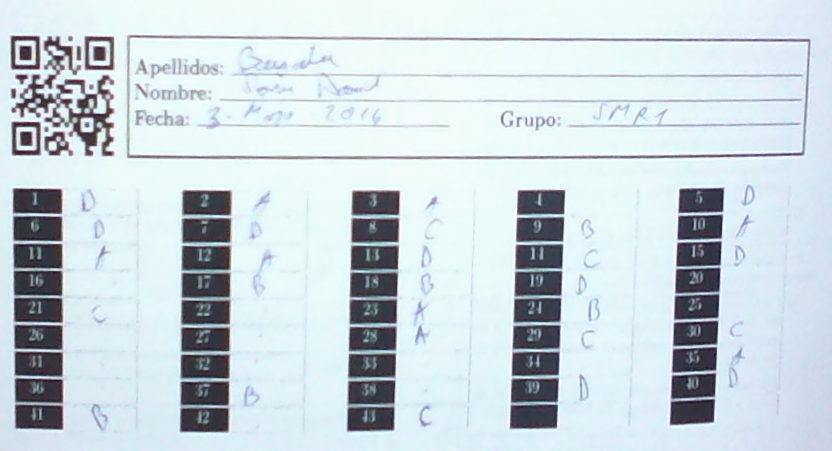 Apellidos:
Nombre:
Fecha: 3 - Mayo - 2016 Grupo: SMR1
1 D 2 A 3 A 4 5 D
6 D 7 D 8 C 9 B 10 A
11 A 12 A 13 D 14 C 15 D
16 17 B 18 B 19 D 20
21 C 22 23 A 24 B 25
26 27 28 A 29 C 30 C
31 32 33 34 35 A
36 37 B 38 39 D 40 D
41 B 42 43 C